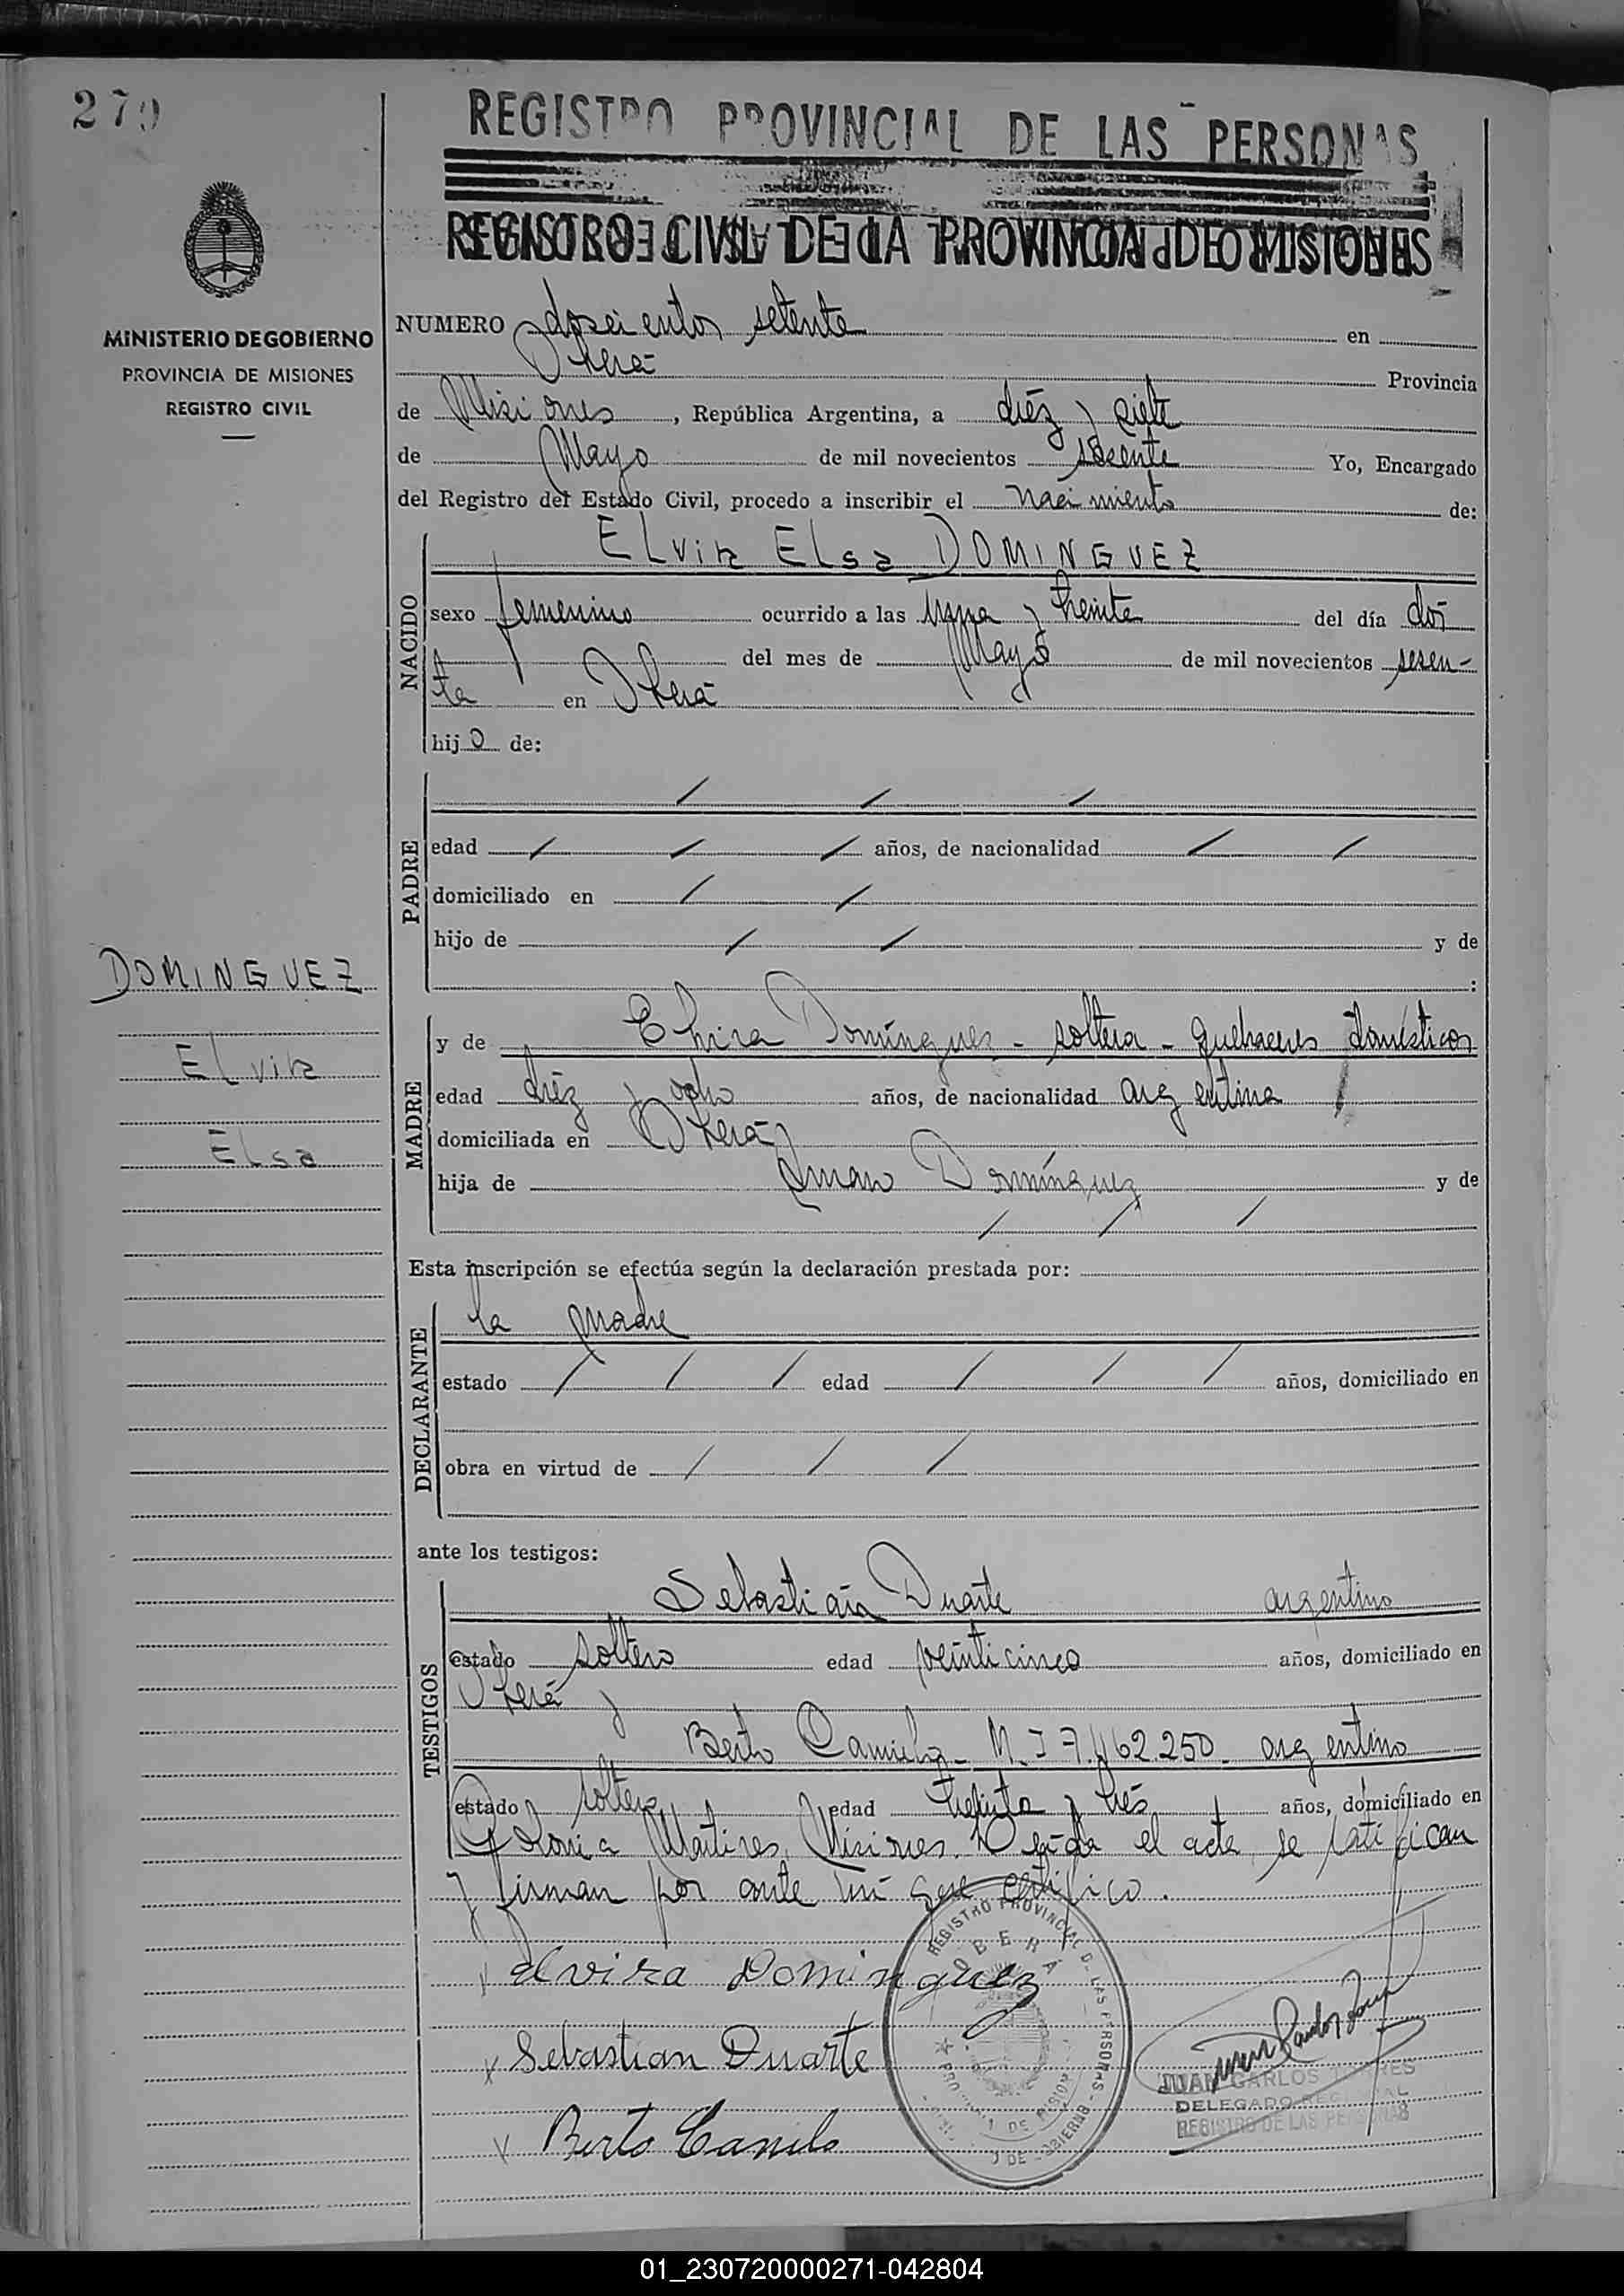 270
REGISTRO PROVINCIAL DE LAS PERSONAS
REGISTRO CIVIL DE LA PROVINCIA DE MISIONES
MINISTERIO DE GOBIERNO
PROVINCIA DE MISIONES
REGISTRO CIVIL
NUMERO doscientos setenta en
Oberá Provincia
de Misiones, República Argentina, a diéz y siete
de Mayo de mil novecientos sesenta Yo, Encargado
del Registro del Estado Civil, procedo a inscribir el nacimiento de:
NACIDO
Elvira Elsa DOMINGUEZ
sexo femenino ocurrido a las y treinta del día dos
del mes de Mayo de mil novecientos sesen-
ta en Oberá
hijo de:
PADRE
edad años, de nacionalidad
domiciliado en
hijo de y de
:
DOMINGUEZ
Elvira
Elsa
MADRE
y de Elvira Domínguez - soltera - quehaceres domésticos
edad diéz y ocho años, de nacionalidad argentina
domiciliada en Oberá
hija de Domínguez y de
Esta inscripción se efectúa según la declaración prestada por:
DECLARANTE
la madre
estado edad años, domiciliado en
obra en virtud de
ante los testigos:
TESTIGOS
Sebastián Duarte argentino
estado soltero edad veinticinco años, domiciliado en
Oberá y
Berto M.I 7.462.250. argentino
estado soltero edad treinta y trés años, domiciliado en
Martires, Misiones. Leída el acta, se ratifican
y firman por ante mí que certifico.
x Elvira Dominguez
x Sebastian Duarte
x Berto
REGISTRO PROVINCIAL DE LAS PERSONAS
OBERÁ
JUAN CARLOS TORRES
DELEGADO REGIONAL
REGISTRO DE LAS PERSONAS
01_230720000271-042804